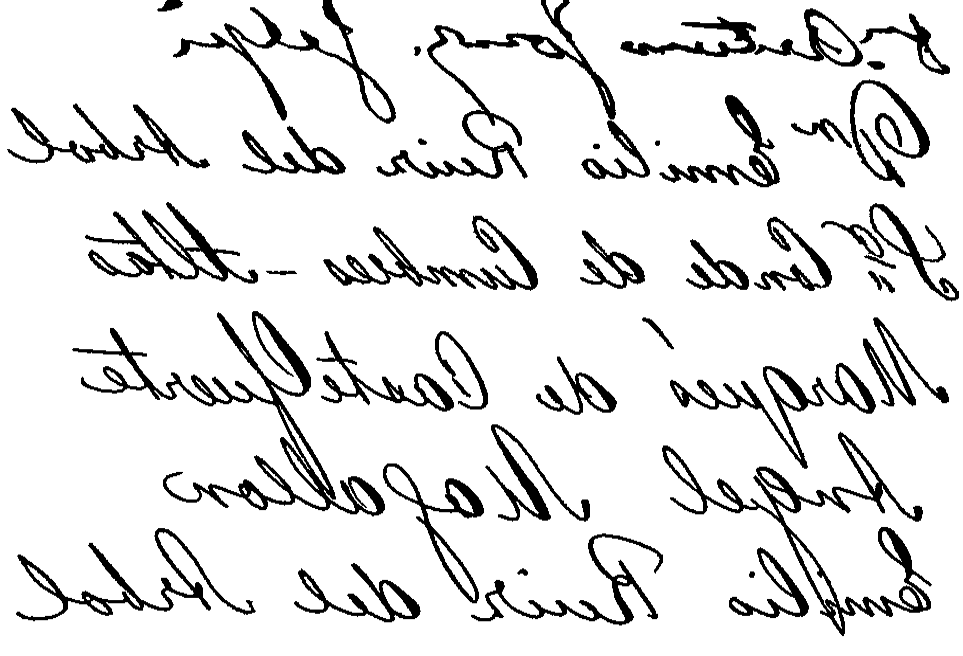 Sr. Arturo Gonz. Gelpi
Dn Emilio Ruiz del Arbol
Sr Conde de Cumbres - Altas
Marqués de Casta Fuerte
Angel Magallon
Emilio Ruiz del Arbol